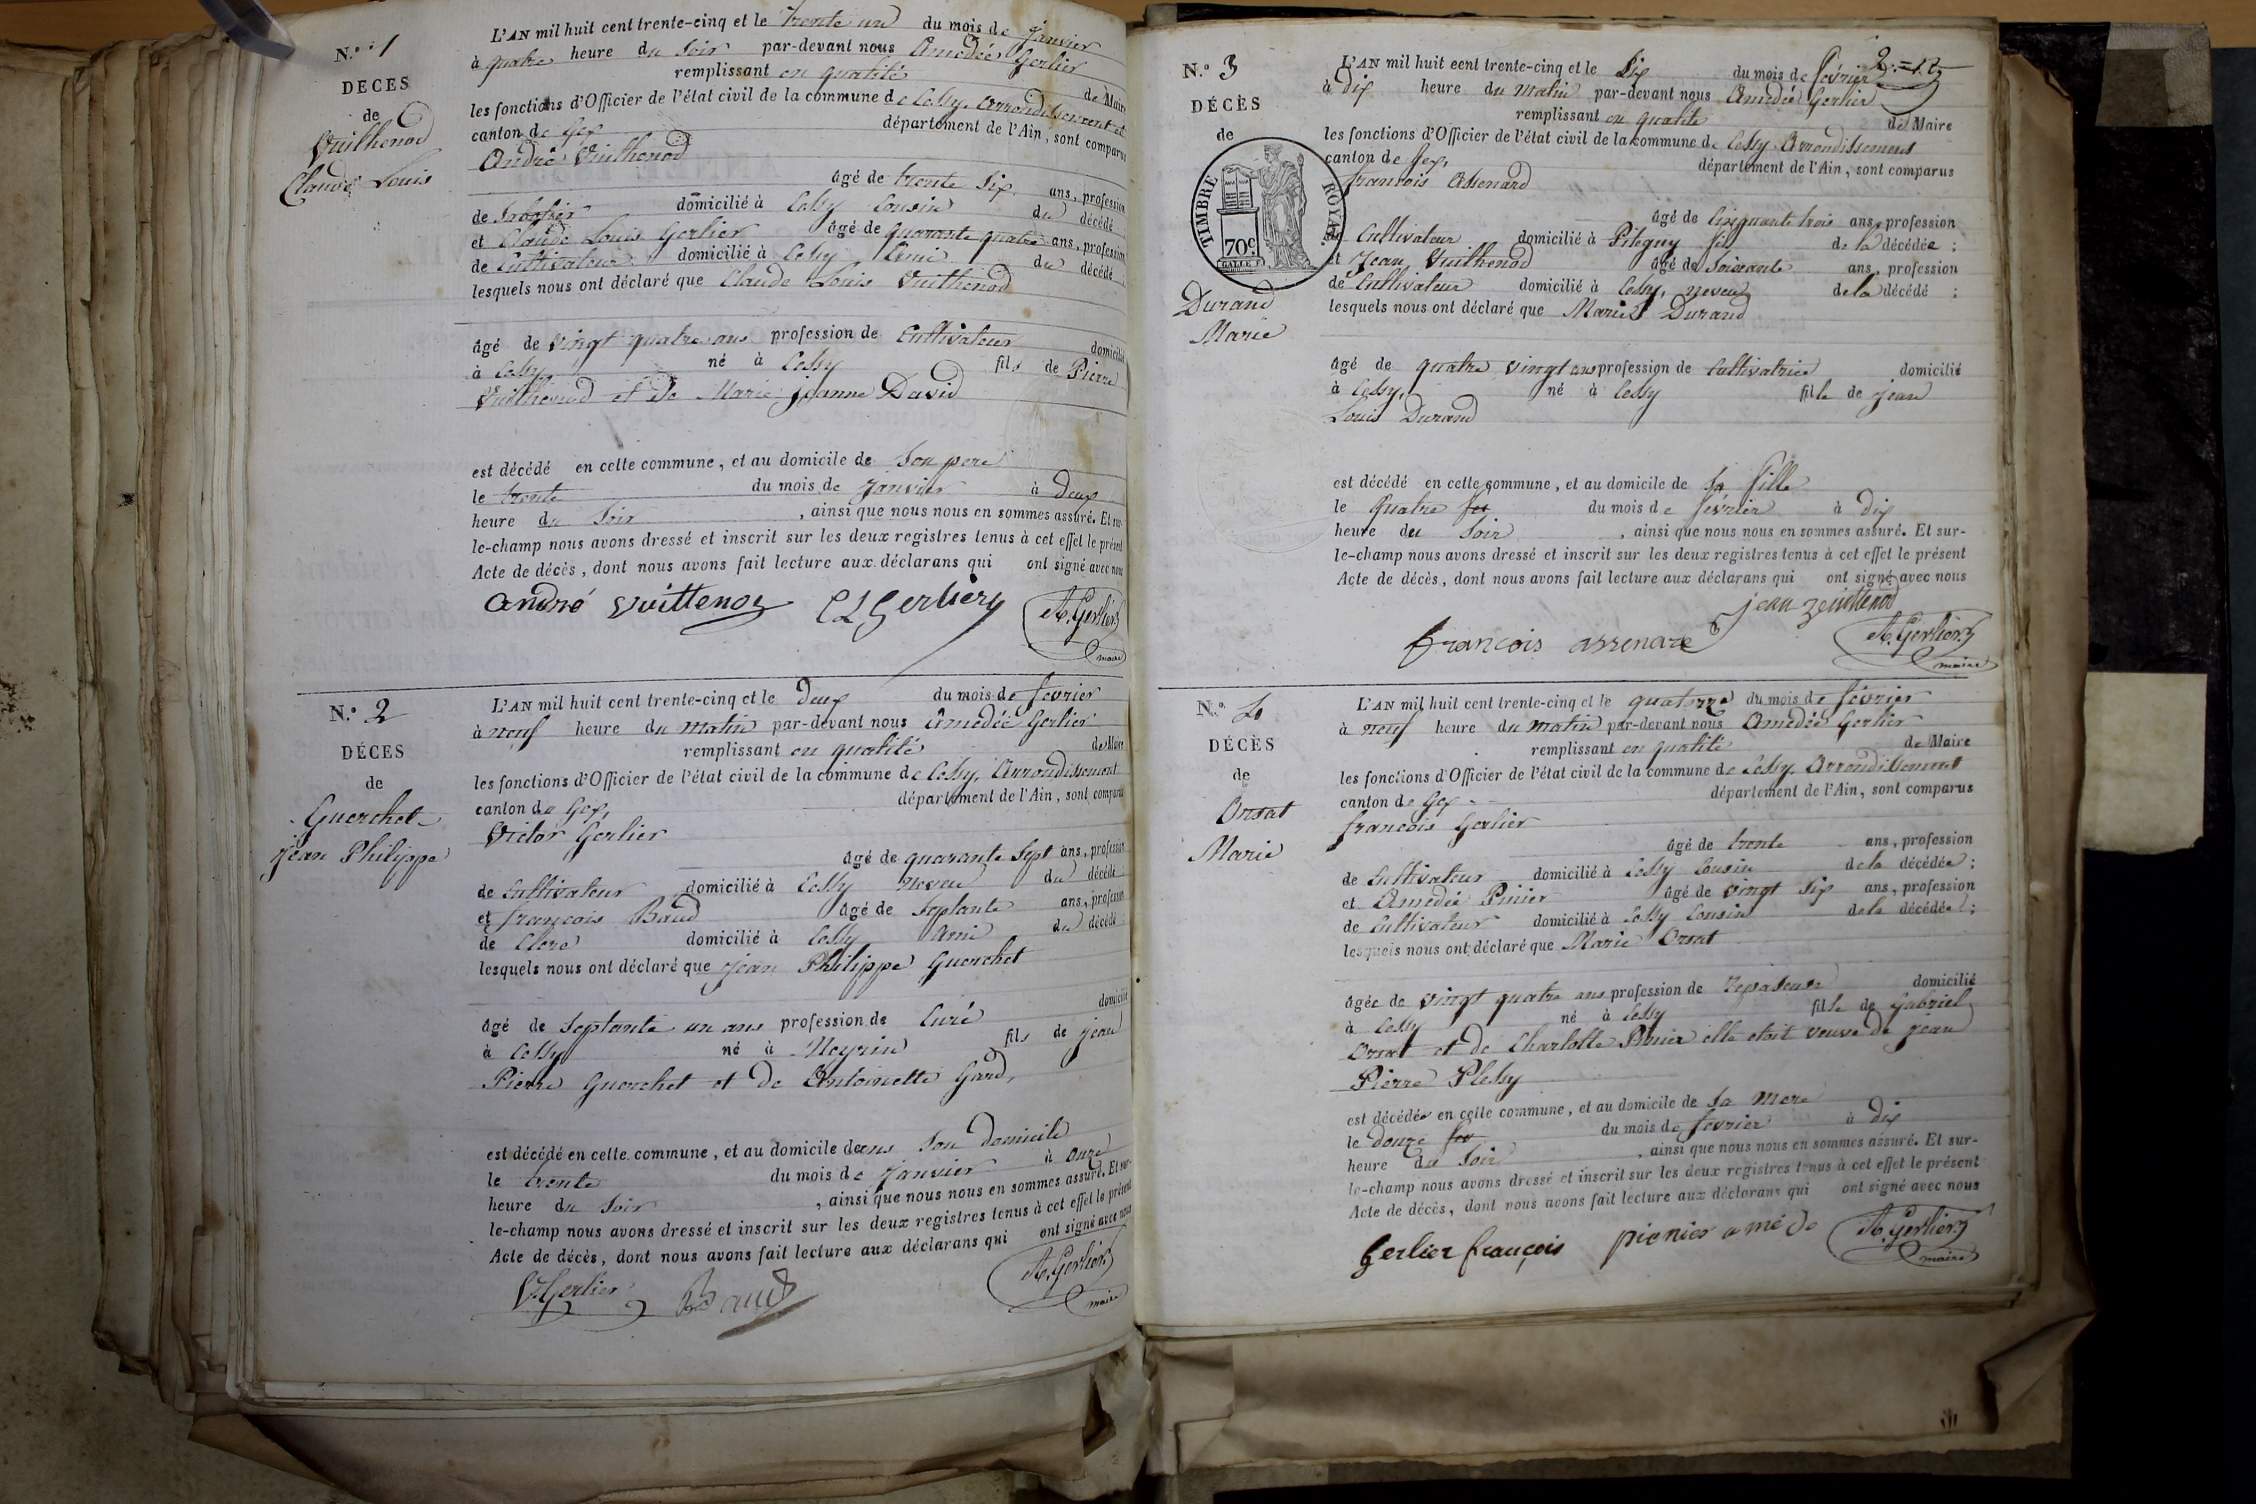 N.° 1
DÉCES
de
Vuithenod
Claude Louis
L'AN mil huit cent trente-cinq et le trente un du mois de janvier
à quatre heure du soir par-devant nous Amedée Gerlier
remplissant en qualité de Maire
les fonctions d'Officier de l'état civil de la commune de Cessy, arrondissement et
canton de Gex département de l'Ain, sont comparus
André Vuithenod
âgé de trente six ans, profession
de domicilié à Cessy Cousin du décédé
et Claude Louis Gerlier âgé de quarante quatre ans, profession
de Cultivateur domicilié à Cessy Amie du décédé
lesquels nous ont déclaré que Claude Louis Vuithenod
âgé de vingt quatre ans profession de Cultivateur domicilié
à Cessy né à Cessy fils de Pierre
Vuithenod et de Marie jeanne David
est décédé en cette commune, et au domicile de son pere
le trente du mois de janvier à deux
heure du soir, ainsi que nous nous en sommes assuré. Et sur-
le-champ nous avons dressé et inscrit sur les deux registres tenus à cet effet le présent
Acte de décès, dont nous avons fait lecture aux déclarans qui ont signé avec nous
andré vuittenoz CLGerlier A. Gerlier
maire
N.° 2
DÉCES
de
Guerchet
jean Philippe
L'AN mil huit cent trente-cinq et le deux du mois de fevrier
à neuf heure du matin par-devant nous Amedée Gerlier
remplissant en qualité de Maire
les fonctions d'Officier de l'état civil de la commune de Cessy, Arrondissement
canton de Gex, département de l'Ain, sont comparus
Victor Gerlier
âgé de quarante sept ans, profession
de Cultivateur domicilié à Cessy neveu du décédé
et françois Baud âgé de septante ans, profession
de Clerc domicilié à Cessy Ami du décédé
lesquels nous ont déclaré que jean Philippe Guerchet
âgé de septante un ans profession de Curé domicilié
à Cessy né à Meyrin fils de jean
Pierre Guerchet et de Antoinette Gard,
est décédé en cette commune, et au domicile dans son domicile
le trente du mois de janvier à onze
heure du soir, ainsi que nous nous en sommes assuré. Et sur-
le-champ nous avons dressé et inscrit sur les deux registres tenus à cet effet le présent
Acte de décès, dont nous avons fait lecture aux déclarans qui ont signé avec nous
V. Gerlier Baud A. Gerlier
maire
N.° 3
DÉCÈS
de
TIMBRE ROYAL.
70c
Durand
Marie
L'AN mil huit cent trente-cinq et le six du mois de février
à dix heure du matin par-devant nous Amedée Gerlier
remplissant en qualité de Maire
les fonctions d'Officier de l'état civil de la commune de Cessy Arrondissement
canton de Gex, département de l'Ain, sont comparus
francois Assenard
âgé de cinquante trois ans, profession
Cultivateur domicilié à fils de la décédée ;
et Jean Vuithenod âgé de soixante ans, profession
de Cultivateur domicilié à Cessy, neveu de la décédé ;
lesquels nous ont déclaré que Marie Durand
âgé de quatre vingt ans profession de Cultivatrice domicilié
à Cessy, né à Cessy fille de jean
Louis Durand
est décédé en cette commune, et au domicile de sa fille
le quatre du mois de février à dix
heure du soir, ainsi que nous nous en sommes assuré. Et sur-
le-champ nous avons dressé et inscrit sur les deux registres tenus à cet effet le présent
Acte de décès, dont nous avons fait lecture aux déclarans qui ont signé avec nous
françois assenare A. Gerlier
maire
N.° 4
DÉCÈS
de
Orsat
Marie
L'AN mil huit cent trente-cinq et le quatorze du mois de février
à neuf heure du matin par-devant nous Amedée Gerlier
remplissant en qualité de Maire
les fonctions d'Officier de l'état civil de la commune de Cessy Arrondissement
canton de Gex département de l'Ain, sont comparus
francois Gerlier
âgé de trente ans, profession
de Cultivateur domicilié à Cessy Cousin de la décédée ;
et Amedée Pinier âgé de vingt six ans, profession
de Cultivateur domicilié à Cessy Cousin de la décédée ;
lesquels nous ont déclaré que Marie Orsat
âgée de vingt quatre ans profession de repaseuse domicilié
à Cessy né à Cessy fille de Gabriel
Orsat et de Charlotte Pinier elle etoit veuve de jean
Pierre Plessy
est décédée en cette commune, et au domicile de sa mere
le douze du mois de fevrier à dix
heure du soir, ainsi que nous nous en sommes assuré. Et sur-
le-champ nous avons dressé et inscrit sur les deux registres tenus à cet effet le présent
Acte de décès, dont nous avons fait lecture aux déclarans qui ont signé avec nous
Gerlier françois pinier amédé A. Gerlier
maire